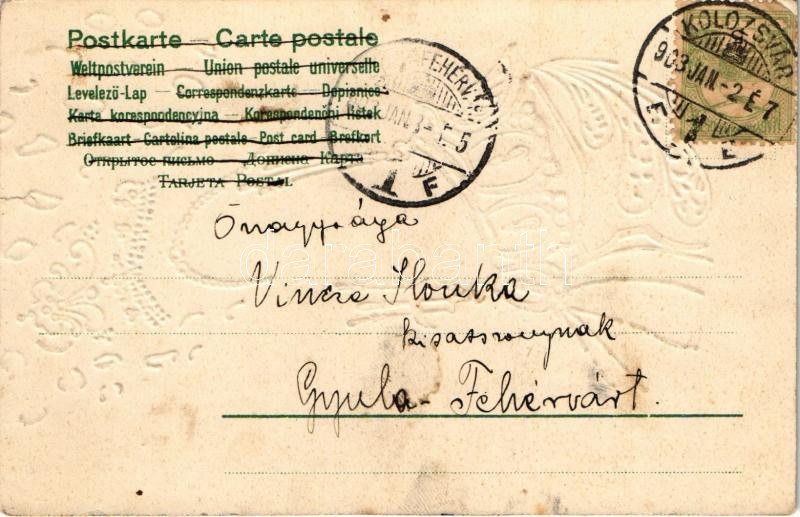 Postkarte — Carte postale
Weltpostverein — Union postale universelle
Levelező-Lap — Correspondenzkarte — Dopisnice
Karta korespondencyjna — Korespondenční listek
Briefkaart — Cartolina postale — Post card — Brefkort
Открытое письмо — Дописна Карта
Tarjeta Postal
FEHÉRV
JAN 3
KOLOZSVÁR
903 JAN.-2 É.7
Ōnagysága
Vincze Ilonka
kisasszonynak
Gyula-Fehérvárt.